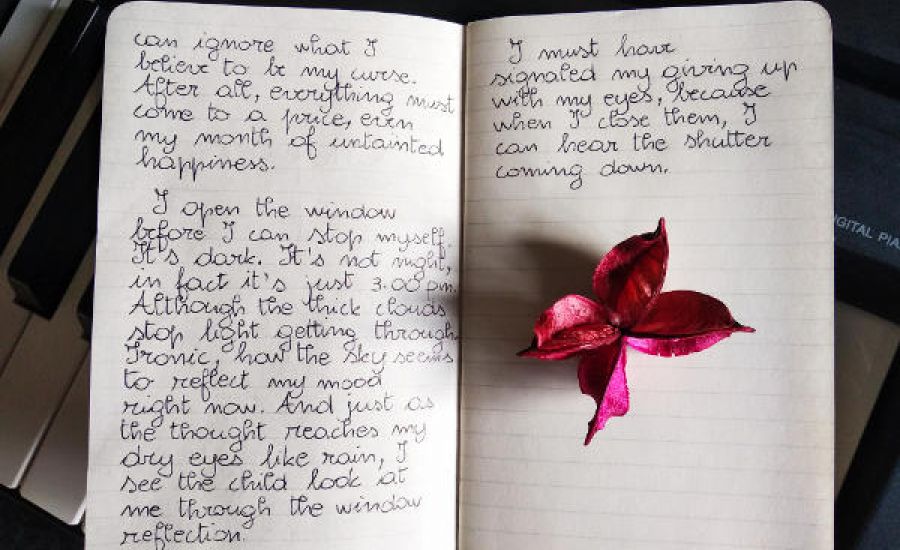 can ignore what I
believe to be my curse.
After all, everything must
come to a price, even
my month of untainted
happiness.
I open the window
before I can stop myself.
It's dark. It's not night,
in fact it's just 3.00 pm.
Although the thick clouds
stop light getting through
Ironic, how the sky seems
to reflect my mood
right now. And just as
the thought reaches my
dry eyes like rain, I
see the child look at
me through the window
reflection.
I must have
signaled my giving up
with my eyes, because
when I close them, I
can hear the shutter
coming down.